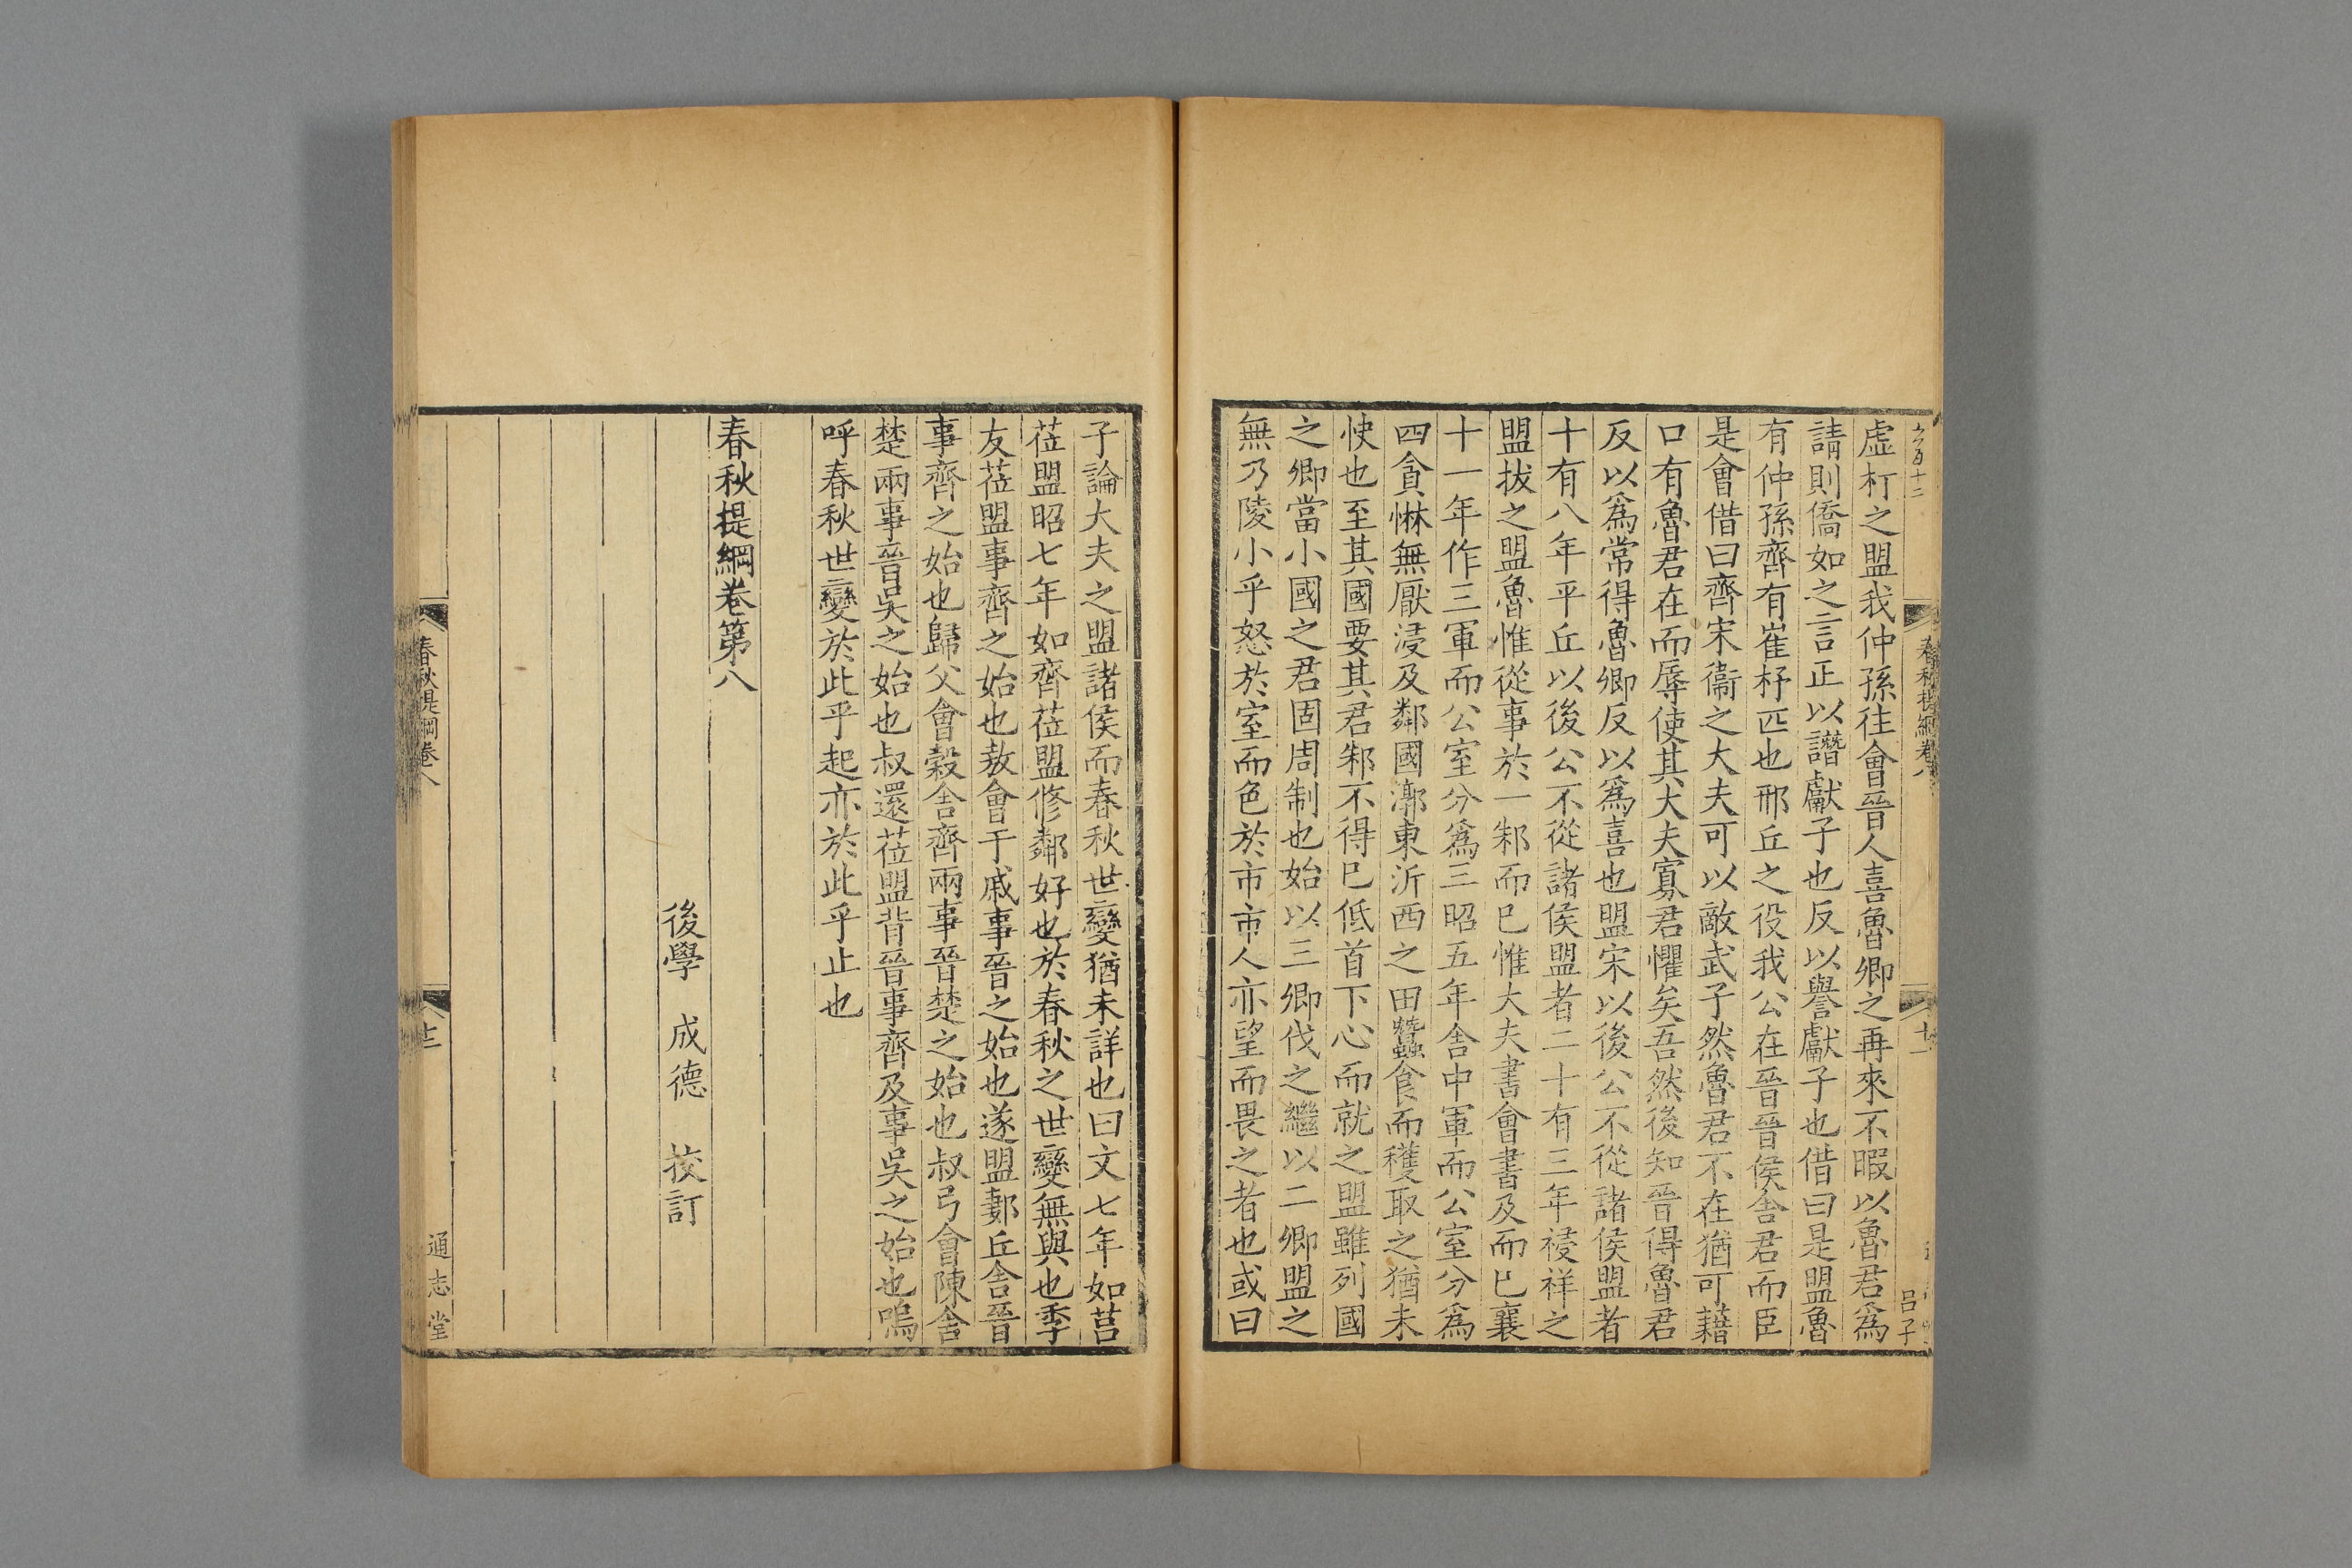 虛朾之盟我仲孫往會晉人喜魯卿之再來不暇以魯君爲
請則僑如之言正以譖獻子也反以譽獻子也借曰是盟魯
有仲孫齊有崔杼匹也邢丘之役我公在晉晉侯舍君而臣
是會借曰齊宋衞之大夫可以敵武子然魯君不在猶可藉
口有魯君在而辱使其大夫寡君懼矣吾然後知晉得魯君
反以爲常得魯卿反以爲喜也盟宋以後公不從諸侯盟者
十有八年平丘以後公不從諸侯盟者二十有三年祲祥之
盟拔之盟魯惟從事於一邾而已惟大夫書會書及而已襄
十一年作三軍而公室分爲三昭五年舍中軍而公室分爲
四貪惏無厭浸及鄰國漷東沂西之田蠶食而穫取之猶未
怏也至其國要其君邾不得已低首下心而就之盟雖列國
之卿當小國之君固周制也始以三卿伐之繼以二卿盟之
無乃陵小乎怒於室而色於市市人亦望而畏之者也或曰
春秋提綱卷八
十一
呂子
子論大夫之盟諸侯而春秋世變猶未詳也曰文七年如莒
莅盟昭七年如齊莅盟修鄰好也於春秋之世變無與也季
友莅盟事齊之始也敖會于戚事晉之始也遂盟鄟丘舍晉
事齊之始也歸父會穀舍齊兩事晉楚之始也叔弓會陳舍
楚兩事晉吳之始也叔還莅盟背晉事齊及事吳之始也嗚
呼春秋世變於此乎起亦於此乎止也
春秋提綱卷第八
後學 成德 挍訂
春秋提綱卷八
通志堂